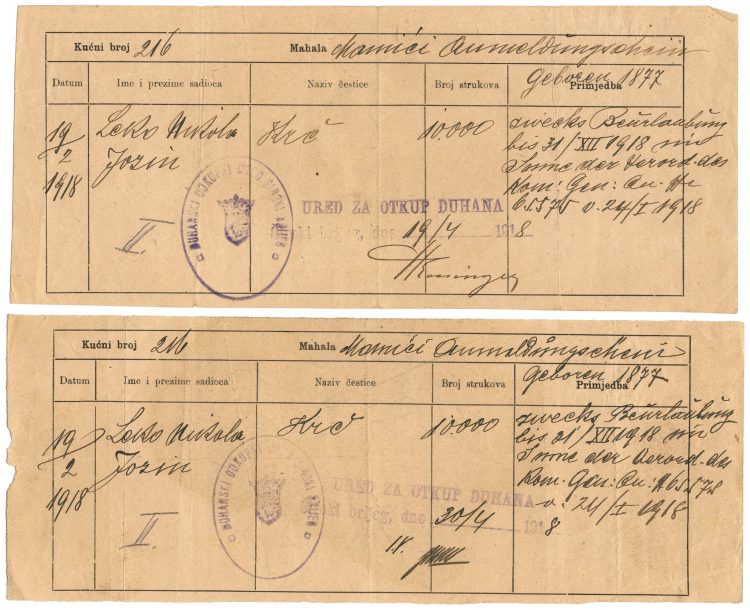 Kućni broj 216 Mahala Mamići Anmeldungschein
Datum Ime i prezime sadioca Naziv čestice Broj strukova Geboren 1877
Primjedba
19/2 1918 Leko Nikola Jozin Krč 10.000 zwecks Beurlaubung
bis 31/XII 1918 im
Sinne der Verord. des
Kom: Gen: 
65575 v. 24/I 1918
II
URED ZA OTKUP DUHANA
brijeg, dne 19/4 1918
Kućni broj 216 Mahala Mamići Anmeldungschein
Datum Ime i prezime sadioca Naziv čestice Broj strukova Geboren 1877
Primjedba
19/2 1918 Leko Nikola Jozin Krč 10.000 zwecks Beurlaubung
bis 31/XII 1918 im
Sinne der Verord. des
Kom: Gen: 65578
v. 24/I 1918
II
URED ZA OTKUP DUHANA
brijeg, dne 30/4 1918